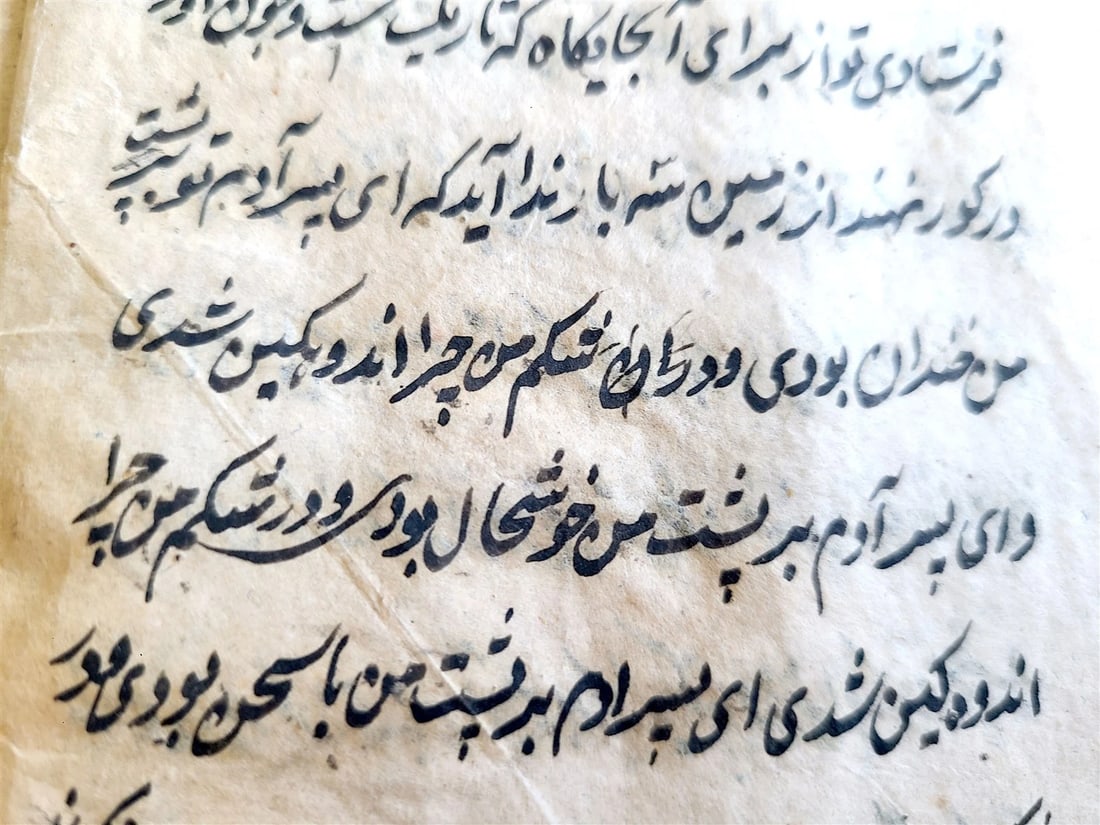 فرستادی تو از برای آنجایکاه که تاریک است و چون اور
در کور نهند از زمین سه بار ندا آید که ای پسر آدم تو بر پشت
من خندان بودی و در شکم من چرا اندوهکین شدی
و ای پسر آدم بر پشت من خوشحال بودی و در شکم من چرا
اندوه کین شدی ای پسر ادم بر پشت من با سخن بودی و در